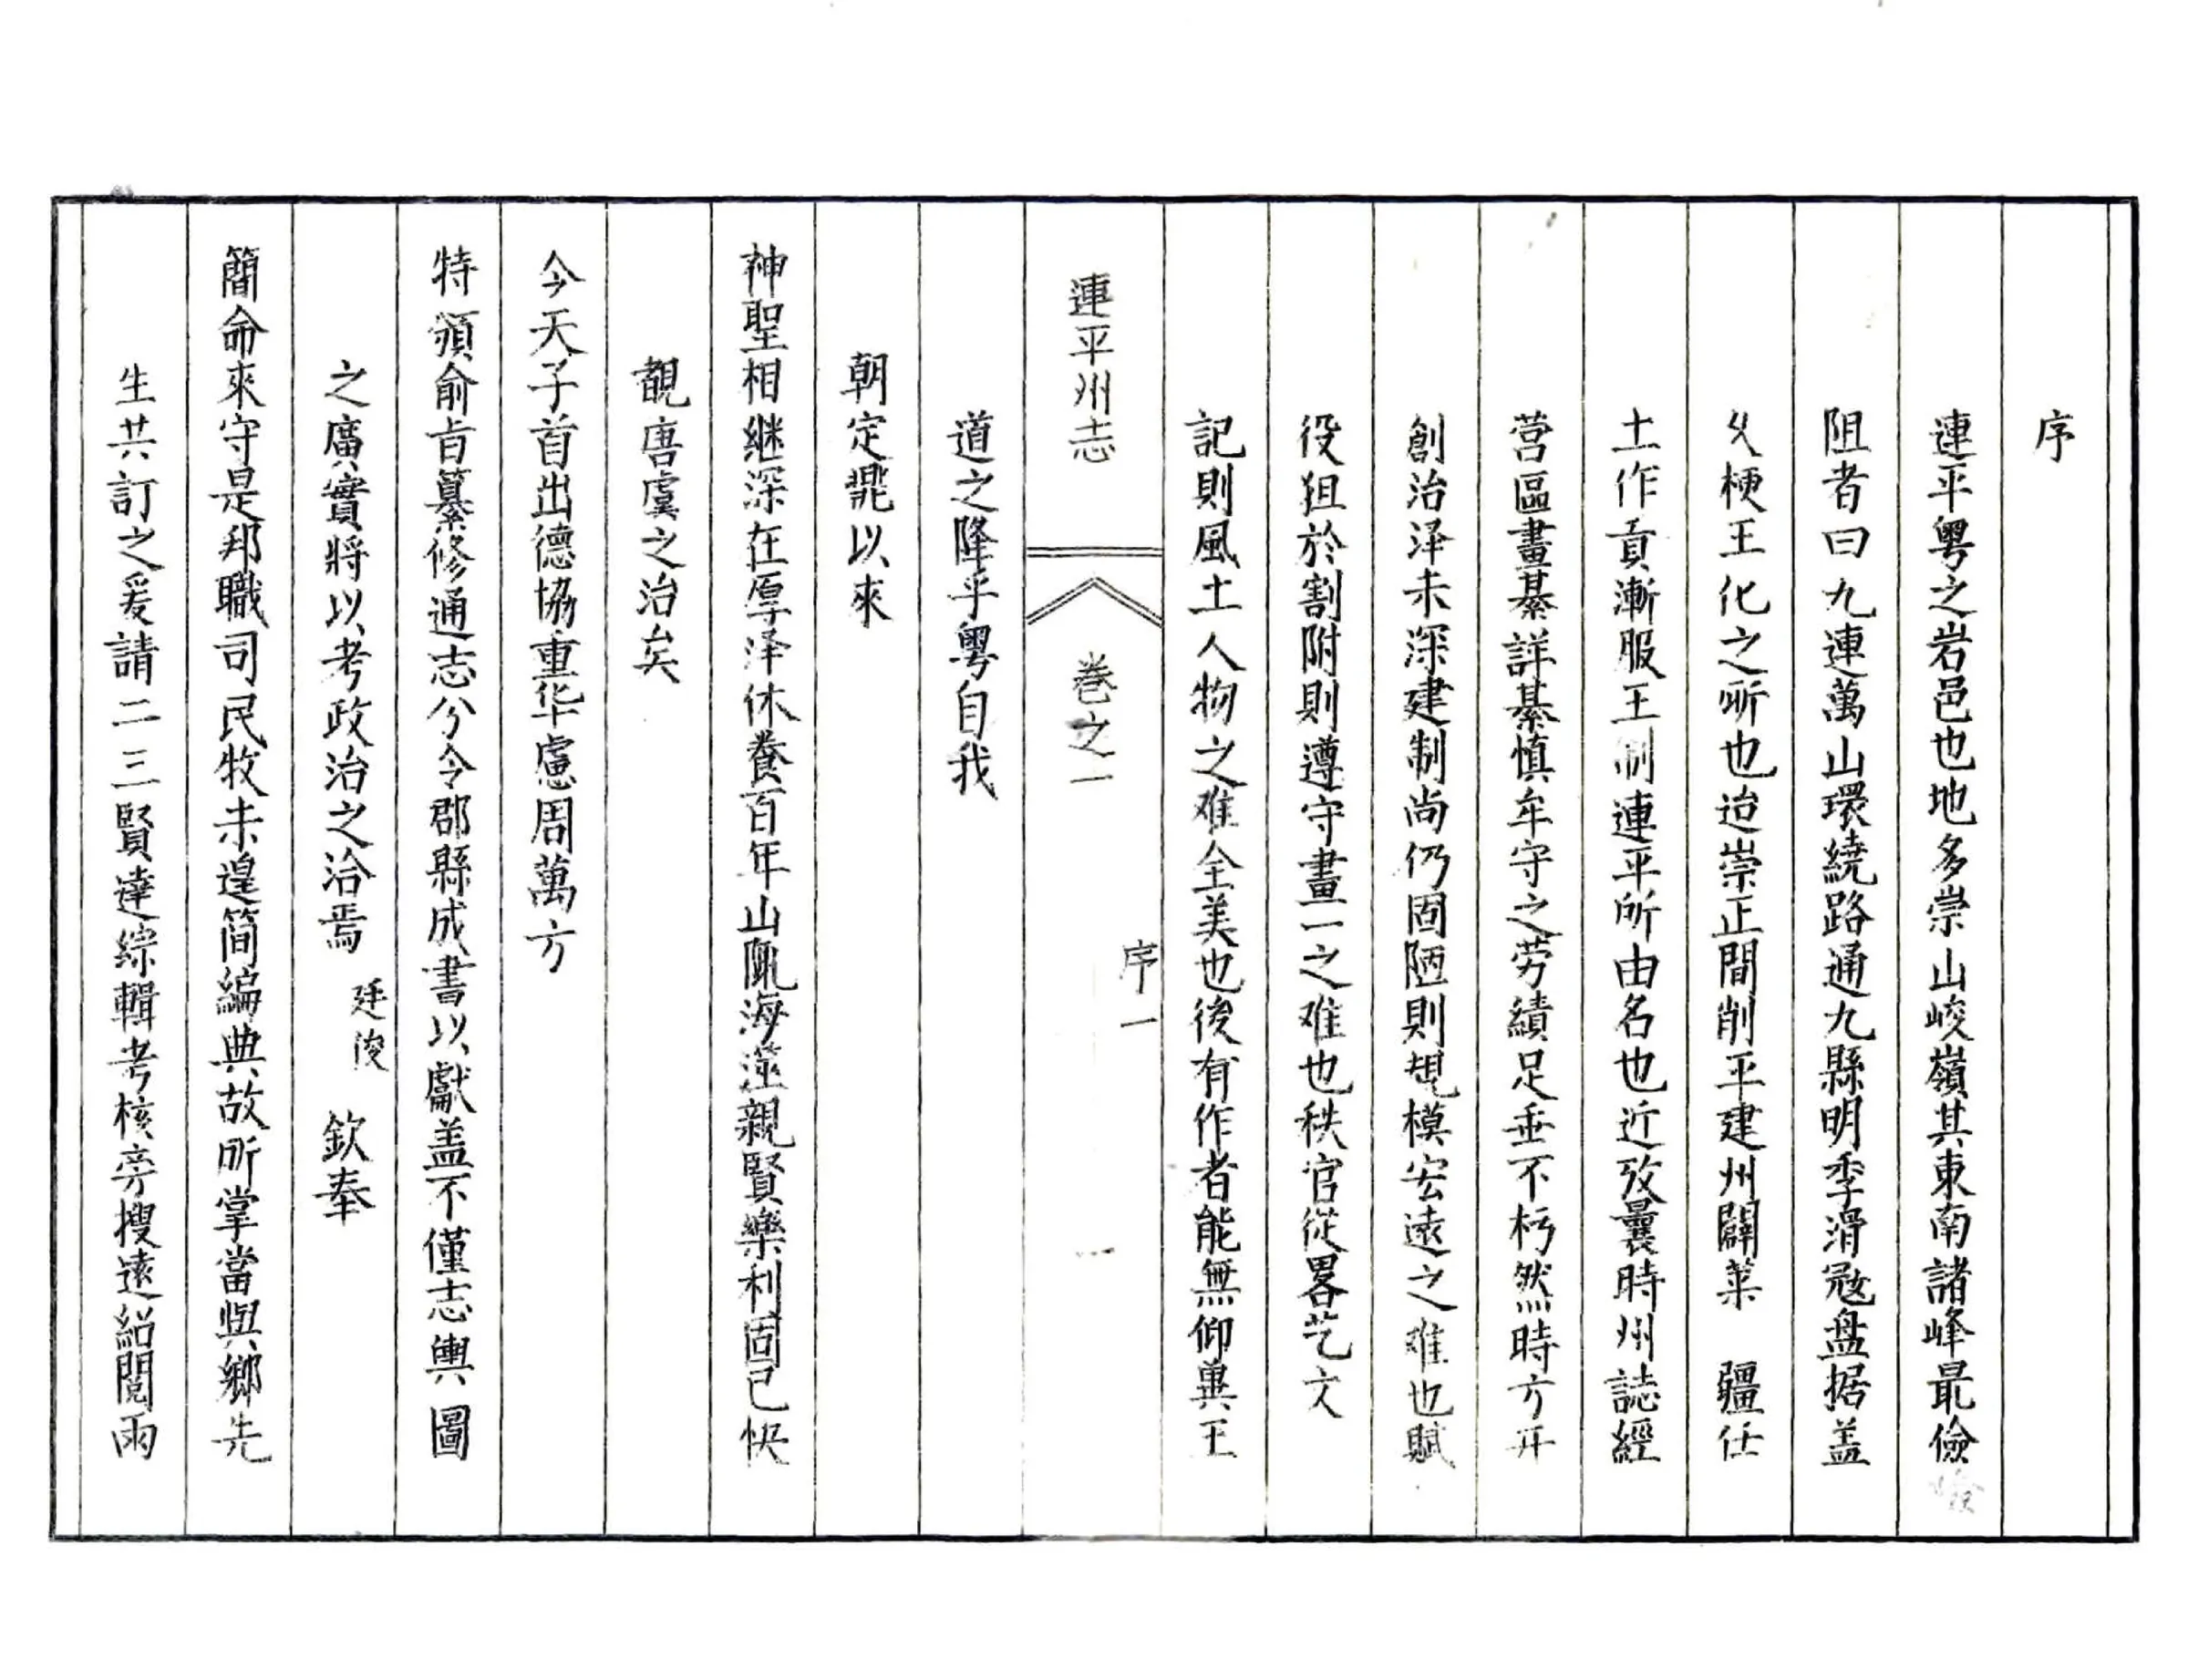 序
連平粤之岩邑也地多崇山峻嶺其東南諸峰最儉
阻者曰九連萬山環繞路通九縣明季滑寇盘据盖
乆梗王化之所也迨崇正間削平建州闢菜 疆任
土作貢漸服王制連平所由名也近攷曩時州誌經
营區畫綦詳綦慎牟守之劳績足垂不朽然時方开
創治泽未深建制尚仍固陋則規模宏遠之难也賦
役狃於割附則遵守畫一之难也秩官從畧艺文
記則風土人物之难全美也後有作者能無仰兾王
連平州志 卷之一 序一 一
道之降乎粤自我
朝定鼎以來
神聖相継深在厚泽休養百年山陬海澨親賢樂利固已快
覩唐虞之治矣
今天子首出德協重华慮周萬方
特頒俞旨纂修通志分令郡縣成書以獻盖不僅志輿圖
之廣實將以考政治之洽焉 廷俊 欽奉
簡命來守是邦職司民牧未遑简編典故所掌當與鄉先
生共訂之爰請二三賢達綜輯考核旁搜遠紹閲兩